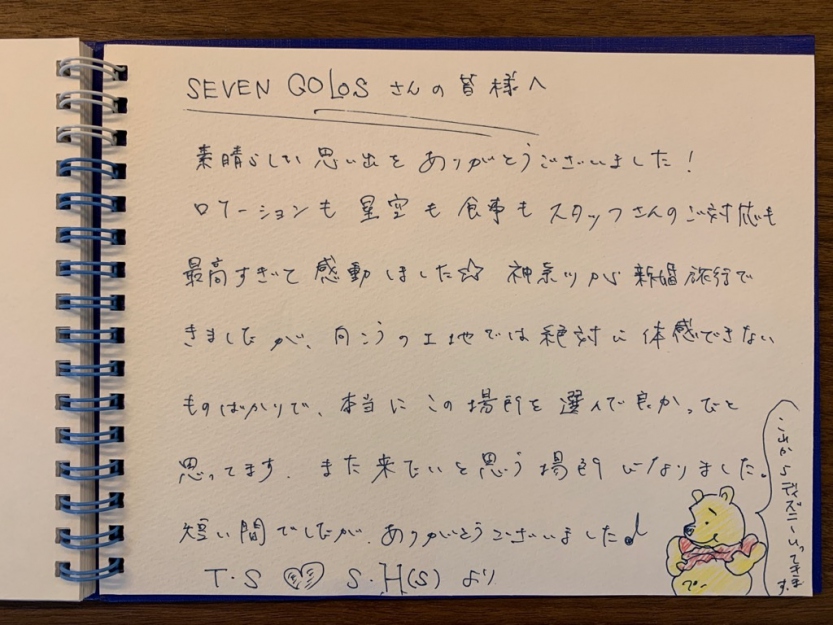 SEVEN GOLOS さんの皆様へ
素晴らしい思い出をありがとうございました！
ロケーションも 星空も 食事も スタッフさんのご対応も
最高すぎて 感動しました☆ 神奈川から 新婚旅行で
きましたが、向こうの土地では絶対に体感できない
ものばかりで、本当に この場所を選んで良かったと
思ってます。また来たいと思う場所になりました。
短い間でしたが、ありがとうございました♪
T・S ♡ S・H(S) より
これからディズニーいってきます。
プー